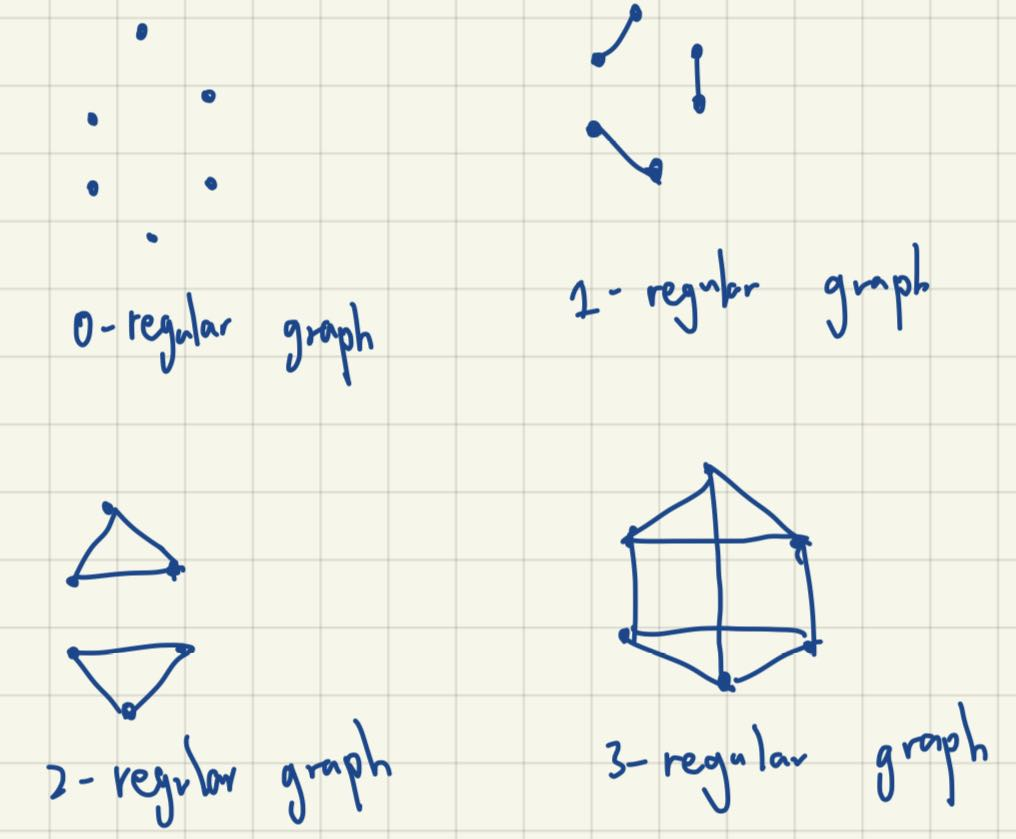 0-regular graph
1-regular graph
2-regular graph
3-regular graph